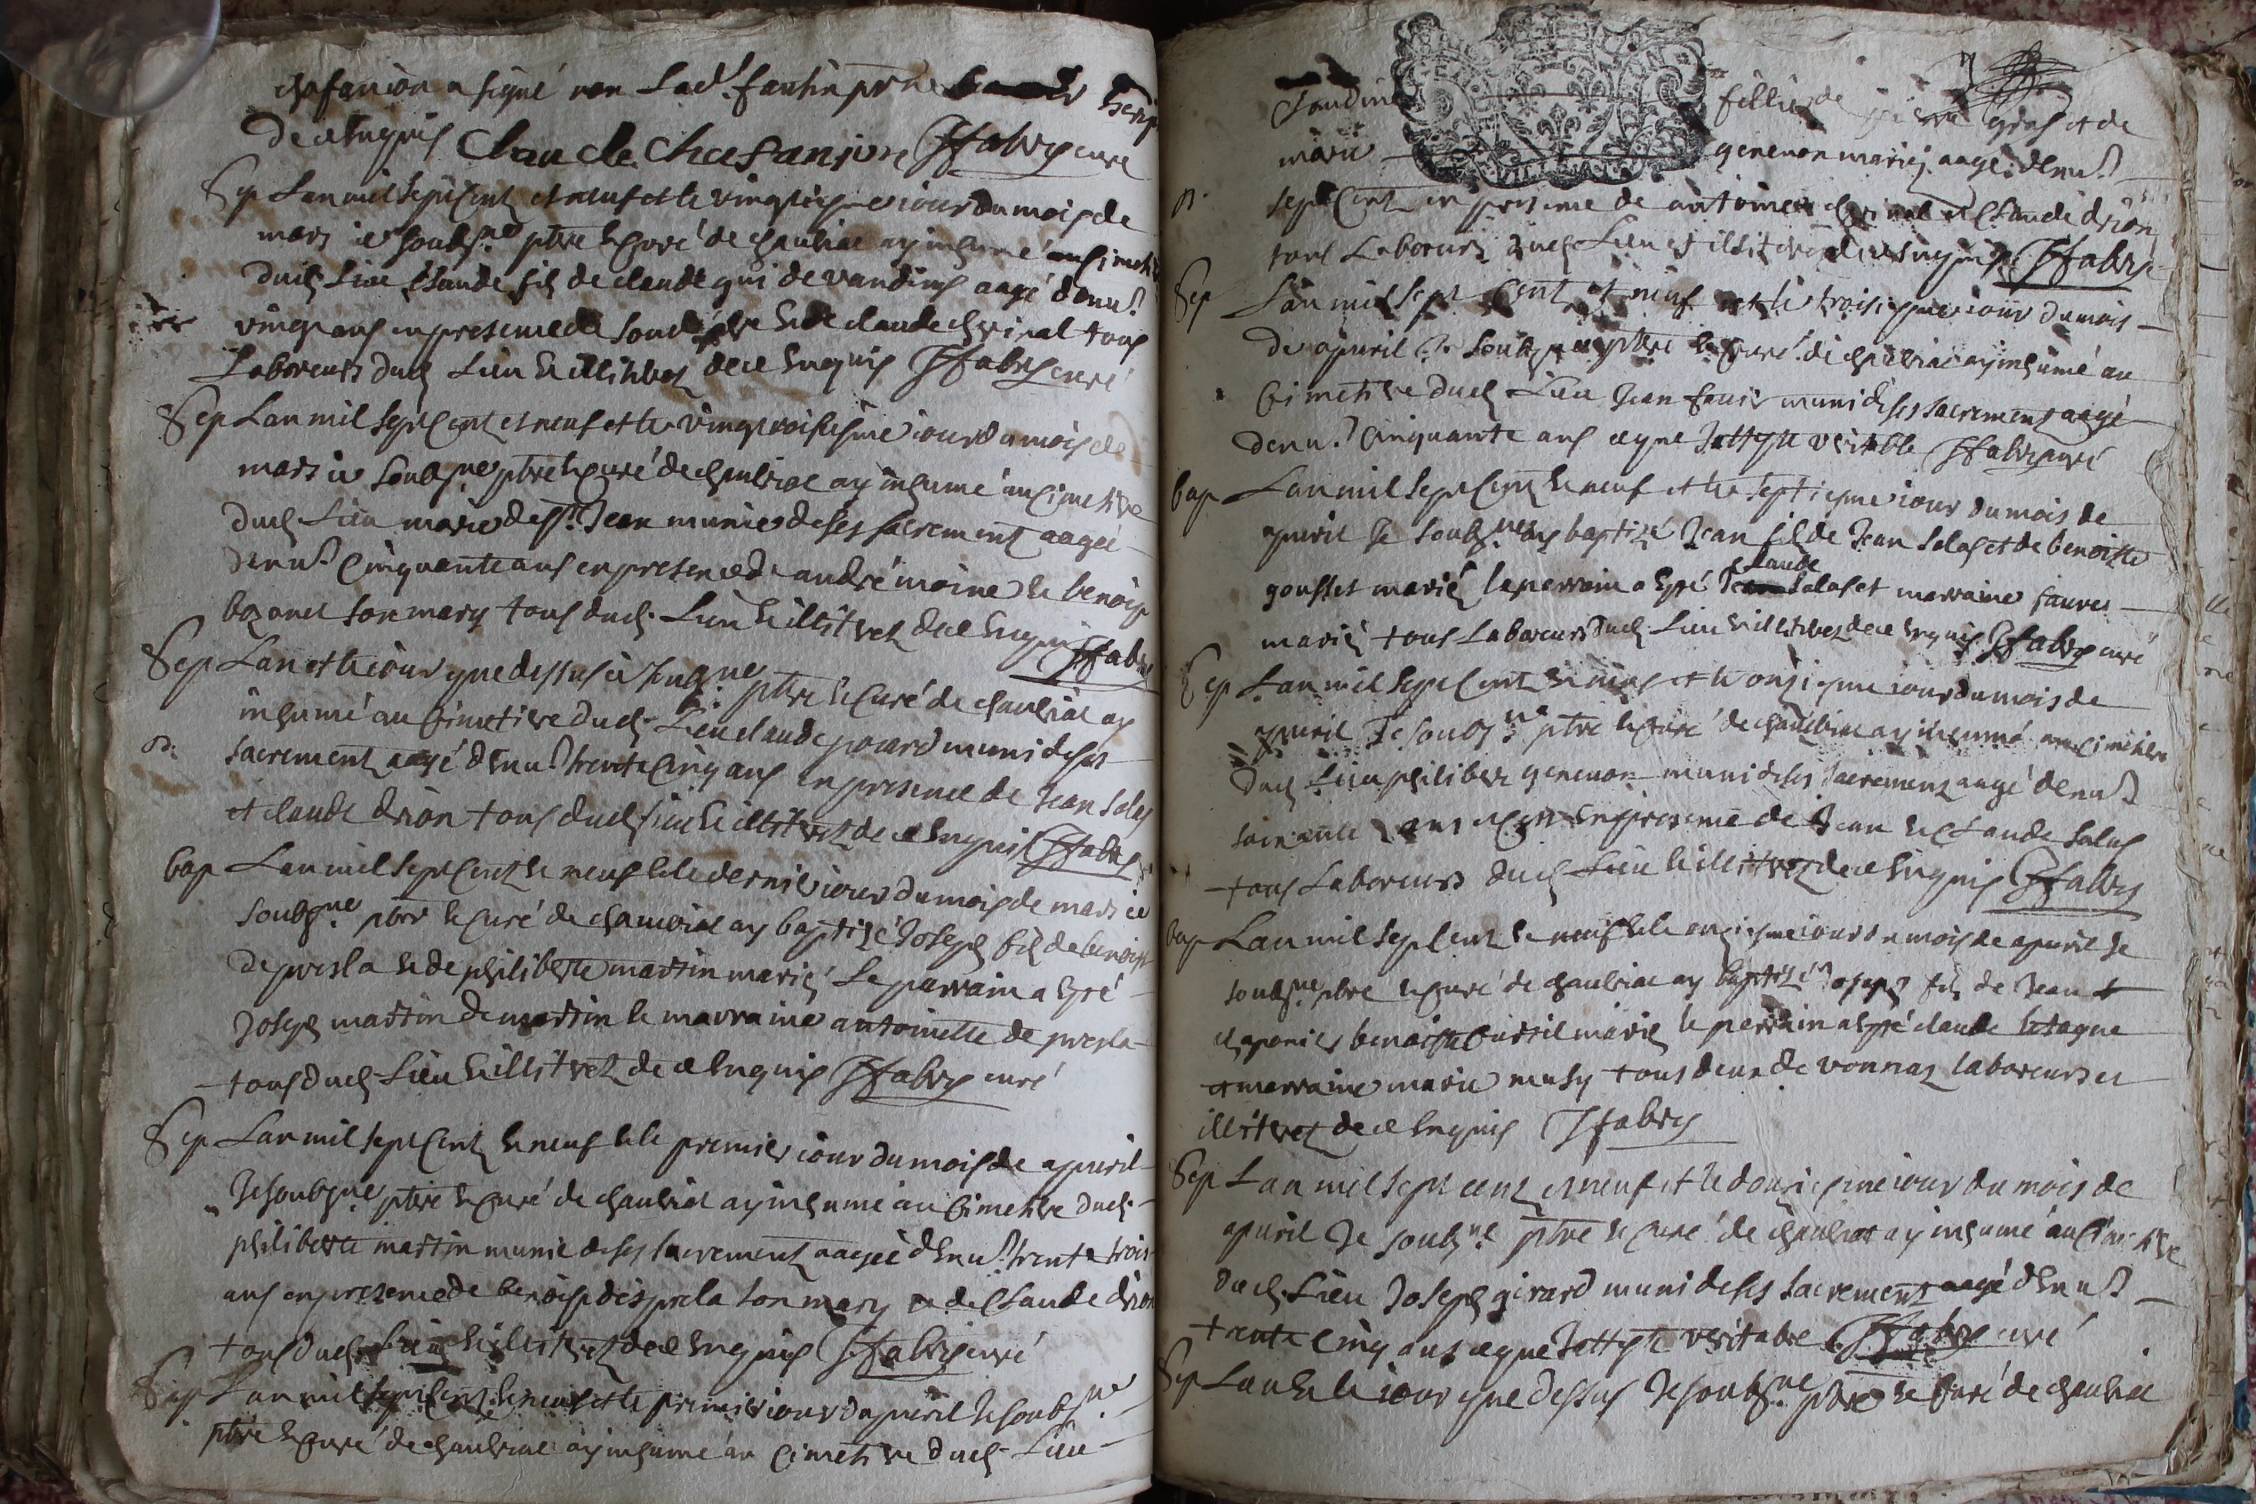 chasanion a signé non lad.t fantin pour ne
de ce enquis Claude Chasanion JFabry curé
Sep Lan mil sept cent et neuf et le vingtiesme iour du mois de
mars ie soubs.né ptre et curé de chaulviac ay inhumé au cimeti
dud. lieu Claude fils de claude gui de vandins aagé d'enu.
vingt ans en presence de et de claude chrinal tous
Laboreurs dud. Lieu et illitrez de ce enquis JFabry curé
Sep Lan mil sept cent et neuf et le vingt troisiesme iour du mois de
mars ie soubs.né ptre et curé de chaulviac ay inhumé au cimetive
dud. Lieu marie Jean munie de ses sacrement aagée
d'enu. Cinquante ans en presence de andré moine et benoist
bozonet son mary tous dud. Lieu et illitrez de ce enquis JFabry
Sep Lan et le iour que dessus ie soubs.né ptre et curé de chaulviac ay
inhumé au cimetivre dud. Lieu claude poiard muni de ses
sacrement aagé d'enu. trente cinq ans en presence de Jean Solas
et claude drion tous dud. lieu et illitrez de ce enquis JFabry
bap Lan mil sept cent et neuf et le dernier iour du mois de mars ie
soubs.né ptre et curé de chaulviac ay baptizé Joseph fils de benoist
de presla et de philiberte martin mariés Le parrain a esté
Joseph martin de martin et marraine antoinette de presla
tous dud. Lieu et illitrez de ce enquis JFabry curé
Sep Lan mil sept cent et neuf et le premier iour du mois de apuril
Je soubs.né ptre et curé de chaulviac ay inhumé au cimetivre dud.
philiberte martin munie de ses sacrement aagée d'enu. trente trois
ans en presence de benoist despresla son mary et de Claude drion
tous dud. lieu et illitrez de ce enquis JFabry curé
Sep Lan mil sept cent et neuf et le premier iour d'apuril Je soubs.né
ptre et curé de chaulviac ay inhumé au cimetivre dud. Lieu
Claudine fillie de pierre gras et de
marie genevon mariés aagé d'enu.
sept en presence de antoine chrinal et Claude drion
tous Laboreurs dud. Lieu et illitrez de ce enquis JFabry
Sep Lan mil sept cent et neuf et le troisiesme iour du mois
de apuril Je soubs.né ptre et curé de chaulviac ay inhumé au
cimetivre dud. Lieu Jean favier muni de ses sacrement aagé
d'enu. Cinquante ans ce que Jatteste veritable JFabry curé
bap Lan mil sept cent et neuf et le septiesme iour du mois de
apuril Je soubs.né ay baptizé Jean fils de Jean Solas et de benoiste
gousset mariés le parrain a esté claude Solas et marraine
mariés tous Laboreurs dud. Lieu et illitrez de ce enquis JFabry curé
Sep Lan mil sept cent et neuf et le onziesme iour du mois de
apuril Je soubs.né ptre et curé de chaulviac ay inhumé au cimetivre
dud. Lieu philiber genevon muni de ses sacrement aagé d'enu.
soixante ans en presence de Jean et Claude Solas
tous Laboreurs dud. Lieu et illitrez de ce enquis JFabry
bap Lan mil sept cent et neuf et le onziesme iour du mois de apuril Je
soubs.né ptre et curé de chaulviac ay baptizé Joseph fils de Jean
chaponier benoiste Curtil mariés le parrain a esté claude
et marraine marie musy tous deux de vonnaz laboreurs et
illitrez de ce enquis JFabry
Sep Lan mil sept cent et neuf et le douziesme iour du mois de
apuril Je soubs.né ptre et curé de chaulviac ay inhumé au cimetivre
dud. Lieu Joseph girard muni de ses sacrement aagé d'enu.
trente cinq ans ce que Jatteste veritable JFabry curé
Sep Lan et le iour que dessus Je soubs.né ptre et curé de chaulviac